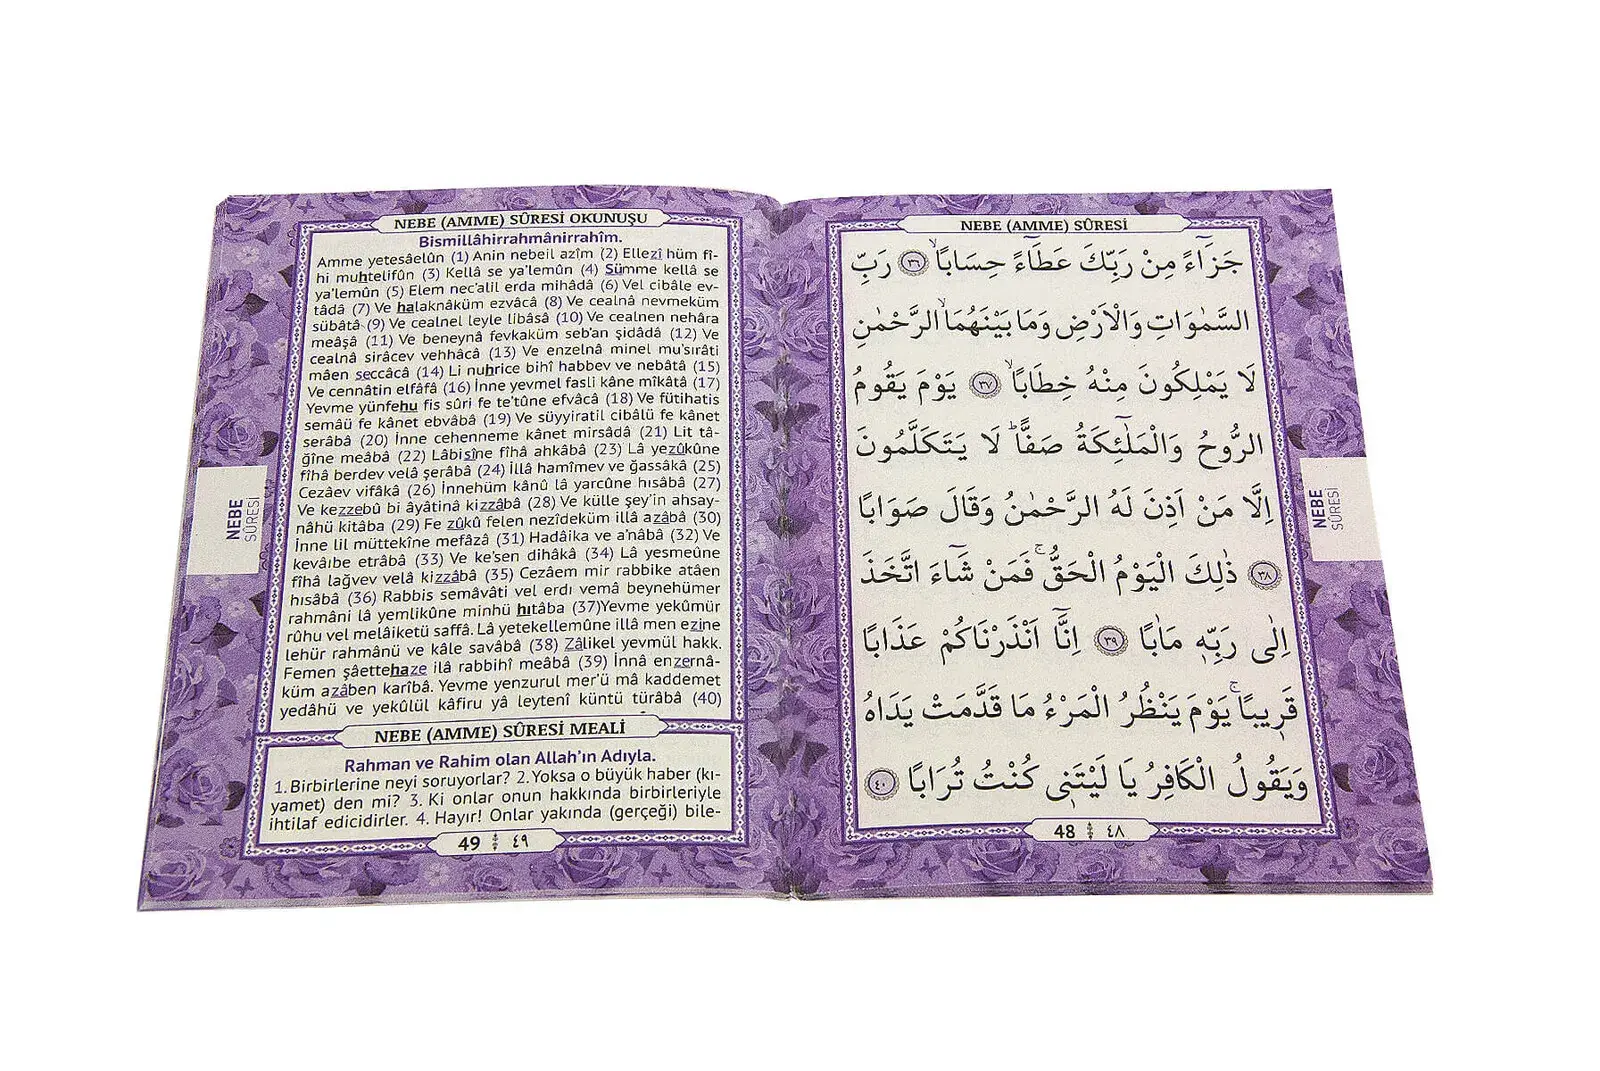 NEBE (AMME) SÛRESİ
جَزَٓاءً مِنْ رَبِّكَ عَطَٓاءً حِسَابًاۙ ﴿٣٦﴾ رَبِّ
السَّمٰوَاتِ وَالْاَرْضِ وَمَا بَيْنَهُمَاۙ الرَّحْمٰنِ
لَا يَمْلِكُونَ مِنْهُ خِطَابًاۙ ﴿٣٧﴾ يَوْمَ يَقُومُ
الرُّوحُ وَالْمَلٰٓئِكَةُ صَفًّاۜ لَا يَتَكَلَّمُونَ
اِلَّا مَنْ اَذِنَ لَهُ الرَّحْمٰنُ وَقَالَ صَوَابًا
﴿٣٨﴾ ذٰلِكَ الْيَوْمُ الْحَقُّۚ فَمَنْ شَٓاءَ اتَّخَذَ
اِلٰى رَبِّه۪ مَاٰبًا ﴿٣٩﴾ اِنَّٓا اَنْذَرْنَاكُمْ عَذَابًا
قَر۪يبًاۚ يَوْمَ يَنْظُرُ الْمَرْءُ مَا قَدَّمَتْ يَدَاهُ
وَيَقُولُ الْكَافِرُ يَا لَيْتَن۪ى كُنْتُ تُرَابًا ﴿٤٠﴾
48 ٤٨
NEBE
SÛRESİ
NEBE (AMME) SÛRESİ OKUNUŞU
Bismillâhirrahmânirrahîm.
Amme yetesâelûn (1) Anin nebeil azîm (2) Ellezî hüm fî-
hi muhtelifûn (3) Kellâ se ya'lemûn (4) Sümme kellâ se
ya'lemûn (5) Elem nec'alil erda mihâdâ (6) Vel cibâle ev-
tâdâ (7) Ve halaknâküm ezvâcâ (8) Ve cealnâ nevmeküm
sübâtâ (9) Ve cealnel leyle libâsâ (10) Ve cealnen nehâra
meâşâ (11) Ve beneynâ fevkaküm seb'an şidâdâ (12) Ve
cealnâ sirâcev vehhâcâ (13) Ve enzelnâ minel mu'sırâti
mâen seccâcâ (14) Li nuhrice bihî habbev ve nebâtâ (15)
Ve cennâtin elfâfâ (16) İnne yevmel fasli kâne mîkâtâ (17)
Yevme yünfehu fis sûri fe te'tûne efvâcâ (18) Ve fütihatis
semâü fe kânet ebvâbâ (19) Ve süyyiratil cibâlü fe kânet
serâbâ (20) İnne cehenneme kânet mirsâdâ (21) Lit tâ-
ğîne meâbâ (22) Lâbisîne fîhâ ahkâbâ (23) Lâ yezûkûne
fîhâ berdev velâ şerâbâ (24) İllâ hamîmev ve ğassâkâ (25)
Cezâev vifâkâ (26) İnnehüm kânû lâ yarcûne hısâbâ (27)
Ve kezzebû bi âyâtinâ kizzâbâ (28) Ve külle şey'in ahsay-
nâhü kitâba (29) Fe zûkû felen nezîdeküm illâ azâbâ (30)
İnne lil müttekîne mefâzâ (31) Hadâika ve a'nâbâ (32) Ve
kevâıbe etrâbâ (33) Ve ke'sen dihâkâ (34) Lâ yesmeûne
fîhâ lağvev velâ kizzâbâ (35) Cezâem mir rabbike atâen
hısâbâ (36) Rabbis semâvâti vel erdı vemâ beynehümer
rahmâni lâ yemlikûne minhü hıtâba (37)Yevme yekûmür
rûhu vel melâiketü saffâ. Lâ yetekellemûne illâ men ezine
lehür rahmânü ve kâle savâbâ (38) Zâlikel yevmül hakk.
Femen şâettehaze ilâ rabbihî meâbâ (39) İnnâ enzernâ-
küm azâben karîbâ. Yevme yenzurul mer'ü mâ kaddemet
yedâhü ve yekûlül kâfiru yâ leytenî küntü türâbâ (40)
NEBE (AMME) SÛRESİ MEALİ
Rahman ve Rahim olan Allah'ın Adıyla.
1. Birbirlerine neyi soruyorlar? 2. Yoksa o büyük haber (kı-
yamet) den mi? 3. Ki onlar onun hakkında birbirleriyle
ihtilaf edicidirler. 4. Hayır! Onlar yakında (gerçeği) bile-
49 ٤٩
NEBE
SÛRESİ